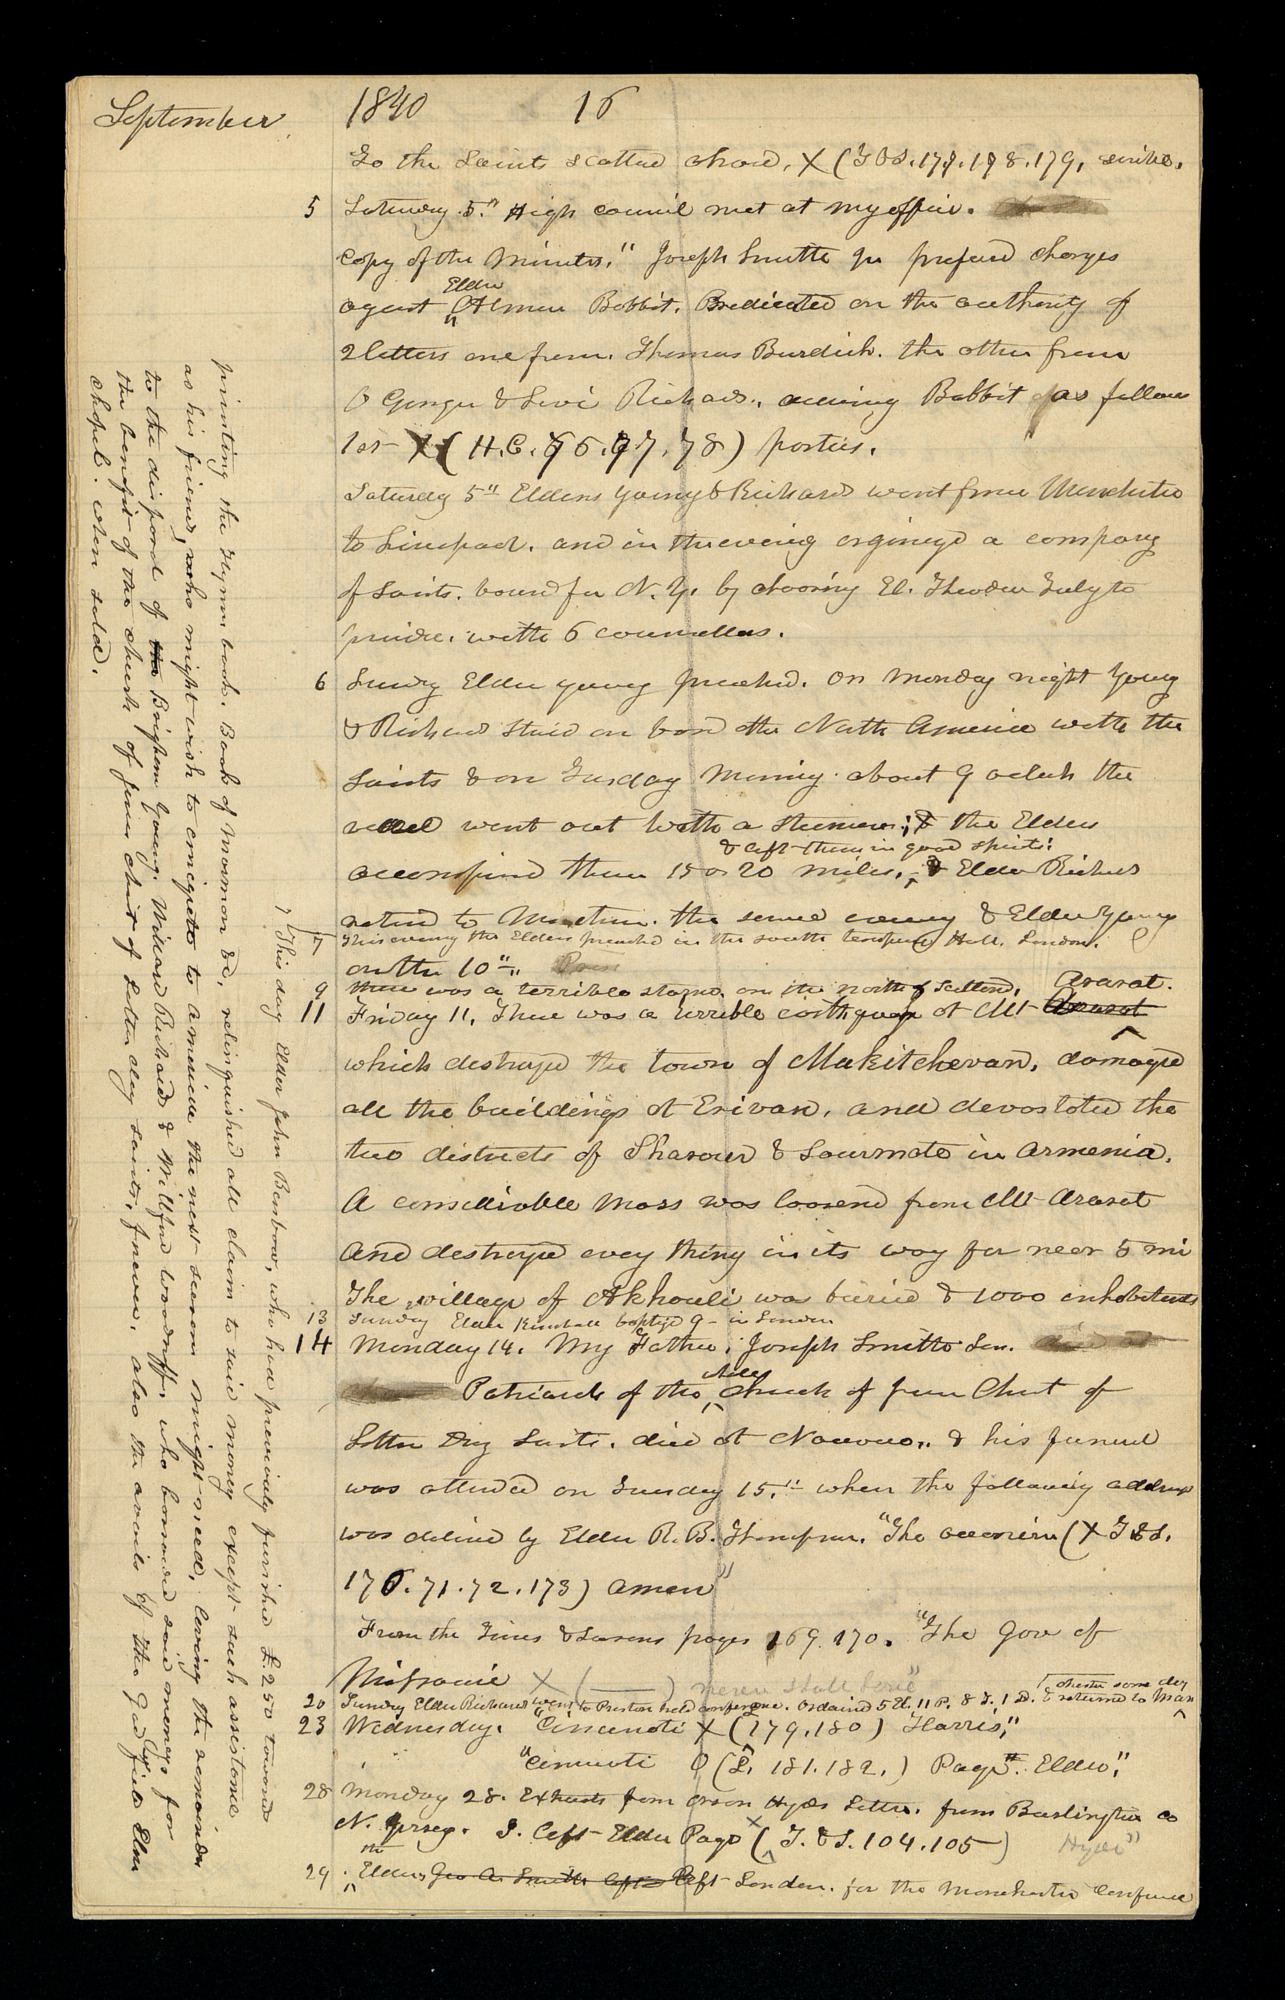 September 1840 16
To the Saints scattered abroad, X (T & S. 177. 178. 179, scribe.
5 Saturday 5." High council met at my office.
Copy of the Minutes." Joseph Smith Jr prefered charges
Elder
against Almon Babbit. Predicated on the authority of
2 letters one from. Thomas Burdick. the other from
O Granger & Levi Richards. accusing Babbit as follows
1st X ( H.C. 76. 77, 78) parties.
Saturday 5" Elders Young & Richards went from Manchester
to Liverpool. and in the evening organized a company
of Saints. bound for N. Y. by choosing El. Theodore Turley to
preside. with 6 counsellors.
6 Sunday Elder Young preached. On Monday night Young
& Richards staid on board the North America with the
Saints & on Tuesday Morning about 9 oclock the
vessel went out with a steamer; & the Elders
& left them in good spirits.
accompanied them 15 or 20 miles, & Elder Richards
returned to Manchester. the same evening & Elder Young
7 This evening the Elders preached in the south temperance Hall, London.
on the 10".
9 There was a terrible storm. on the north of Scotland,
Ararat.
11 Friday 11, There was a terrible earthquake at Mt Ararat
which destroyed the town of Makitchevan, damaged
all the buildings at Erivan, and devastated the
two districts of Sharour & Sourmate in Armenia.
A considerable mass was loosend from Mt Ararat
and destroyed every thing in its way for near 5 mi
The village of Akhouli was buried & 1000 inhabitants
13 Sunday Elder Kimball baptized 9 in London
14 Monday 14. My Father, Joseph Smith Sen.
Patriarch of the whole Church of Jesus Christ of
Latter Day Saints. died at Nauvoo. & his funeral
was attended on Tuesday 15." when the following address
was delivered by Elder R. B. Thompson. "The occasion (X T & S.
170. 71. 72. 173) amen"
From the Times & Seasons pages 169. 170. "The Gov of
Missouri X ( —— ) never shall have"
chester same day
20 Sunday Elder Richards went to Preston held conference. Ordained 5 El. 11 P. 8 T. 1 D. & returned to Man
23 Wednesday. "Cincinati X (179, 180) Harris,"
"Cincinati O (L. 181. 182.) Page. Elders,"
28 Monday 28. Extracts from Orson Hydes Letter. from Burlington Co
N. Jersey. I. left Elder Page X ( T. & S. 104. 105) Hyde"
29 the Elders Geo A. Smith left Left London. for the Manchester Conference
7 This day Elder John Benbow, who had previously furnished £250 towards
printing the Hymn book. Book of Mormon &c, relinquished all claim to said money except such assistance
as his friends, who might wish to emigrate to America the next season might need, leaving the remainder
to the disposal of the Brigham Young. Willard Richards & Wilford Woodruff, who borrowed said moneys for
the benefit of the church of Jesus christ of Latter day saints, forever. also the avails of the Gadfield Elm
chapel. when sold.